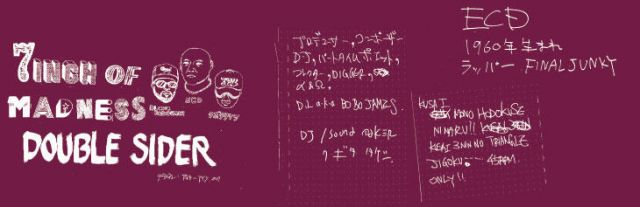 7INCH OF
MADNESS
DOUBLE SIDER
ECD
プロデューサー, コンポーザー
DJ, パートタイムポエット,
DIGGER,
D.L a.k.a BOBO JAMES.
DJ / Sound maker
ECD
1960年生まれ
ラッパー FINAL JUNKY
KUSAI
MONO HODOKUSE
NINARU!!
KUSAI 3NIN NO TRIANGLE
JIGOKU
ONLY!!